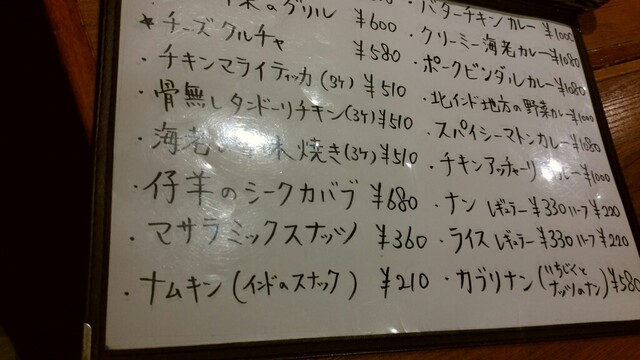 のグリル ¥600
★チーズクルチャ ¥580
・チキンマライティッカ(3ケ) ¥510
・骨無しタンドーリチキン(3ケ) ¥510
・海老 焼き(3ケ) ¥510
・仔羊のシークカバブ ¥680
・マサラミックスナッツ ¥360
・ナムキン(インドのスナック) ¥210
・バターチキンカレー ¥1000
・クリーミー海老カレー ¥1080
・ポークビンダルカレー ¥1080
・北インド地方の野菜カレー ¥1000
・スパイシーマトンカレー ¥1080
・チキンアッチャーリ カレー ¥1000
・ナン レギュラー ¥330 ハーフ ¥220
・ライス レギュラー ¥330 ハーフ ¥220
・カブリナン(いちじくとナッツのナン) ¥580